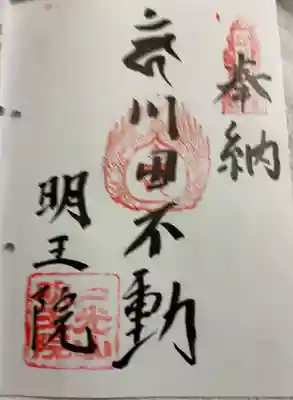 奉納
川田不動
明王院